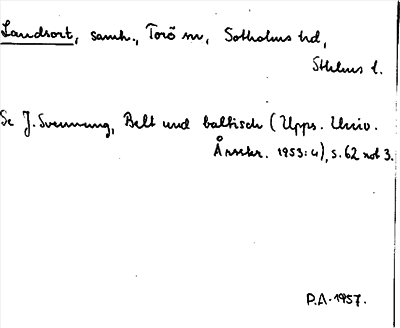 Landsort, samh., Torö sn, Sotholms hd,
Sthlms l.
Se J. Svennung, Belt und baltisch (Upps. Univ.
Årsskr. 1953:4), s. 62 not 3.
P.A. 1957.